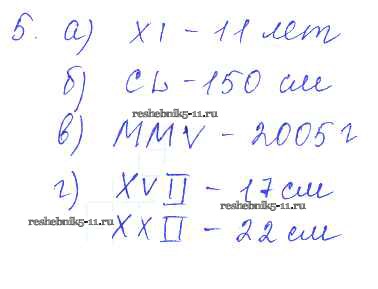 5. а) XI - 11 лет
б) CL - 150 см
reshebnik5-11.ru
в) MMV - 2005 г
г) XVII - 17 см
reshebnik5-11.ru
reshebnik5-11.ru
XXII - 22 см